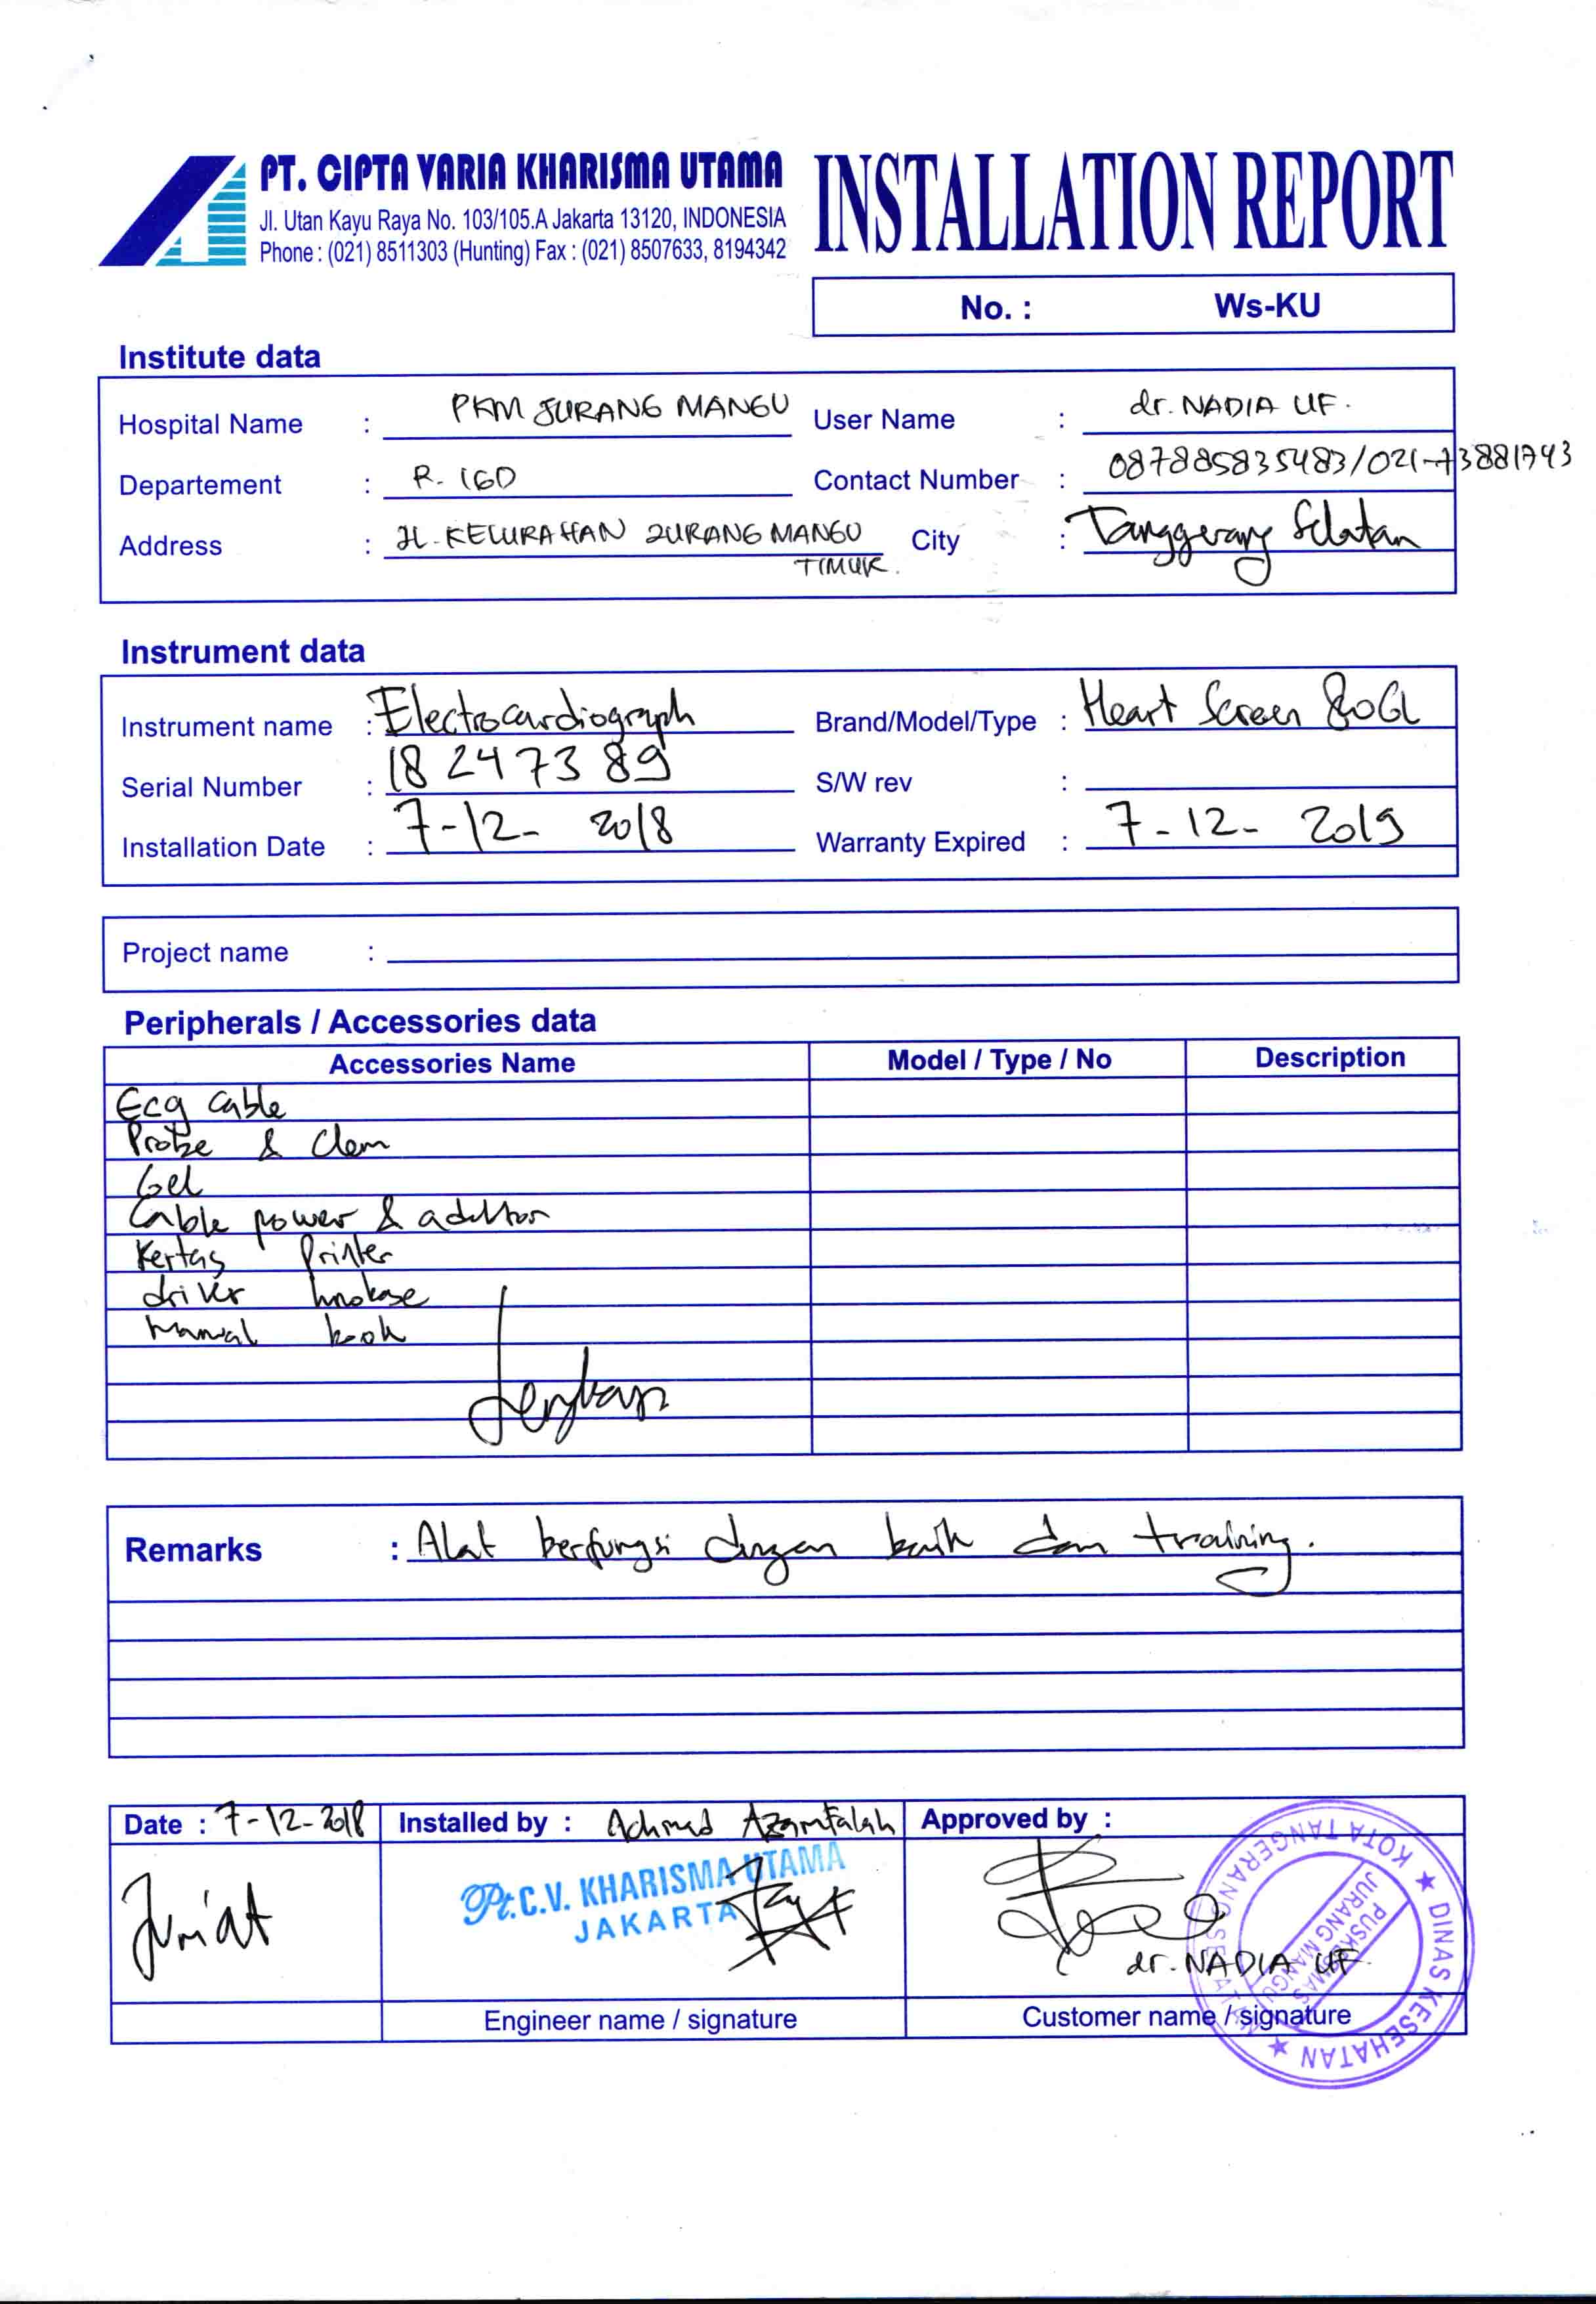 PT. CIPTA VARIA KHARISMA UTAMA
Jl. Utan Kayu Raya No. 103/105.A Jakarta 13120, INDONESIA
Phone : (021) 8511303 (Hunting) Fax : (021) 8507633, 8194342
INSTALLATION REPORT
No. : Ws-KU
Institute data
Hospital Name : PKM JURANG MANGU User Name : dr. NADIA UF.
Departement : R. IGD Contact Number : 087885835483/021-73881743
Address : JL. KELURAHAN JURANG MANGU City : Tanggerang Selatan
TIMUR.
Instrument data
Instrument name : Electrocardiograph Brand/Model/Type : Heart Screen 80GL
Serial Number : 18247389 S/W rev :
Installation Date : 7-12-2018 Warranty Expired : 7-12-2019
Project name :
Peripherals / Accessories data
Accessories Name Model / Type / No Description
Ecg Cable
Probe & Clem
Gel
Cable power &
Kertas Printer
driver
Manual book
Lengkap
Remarks : Alat berfungsi dengan baik dan training.
Date : 7-12-2018 Installed by : Achmad Azamfalah Approved by :
Juriat
Pt.C.V. KHARISMA UTAMA
JAKARTA
dr. NADIA UF
KOTA TANGERANG SELATAN ★ DINAS KESEHATAN ★
PUSKESMAS
JURANG MANGU
Engineer name / signature Customer name / signature